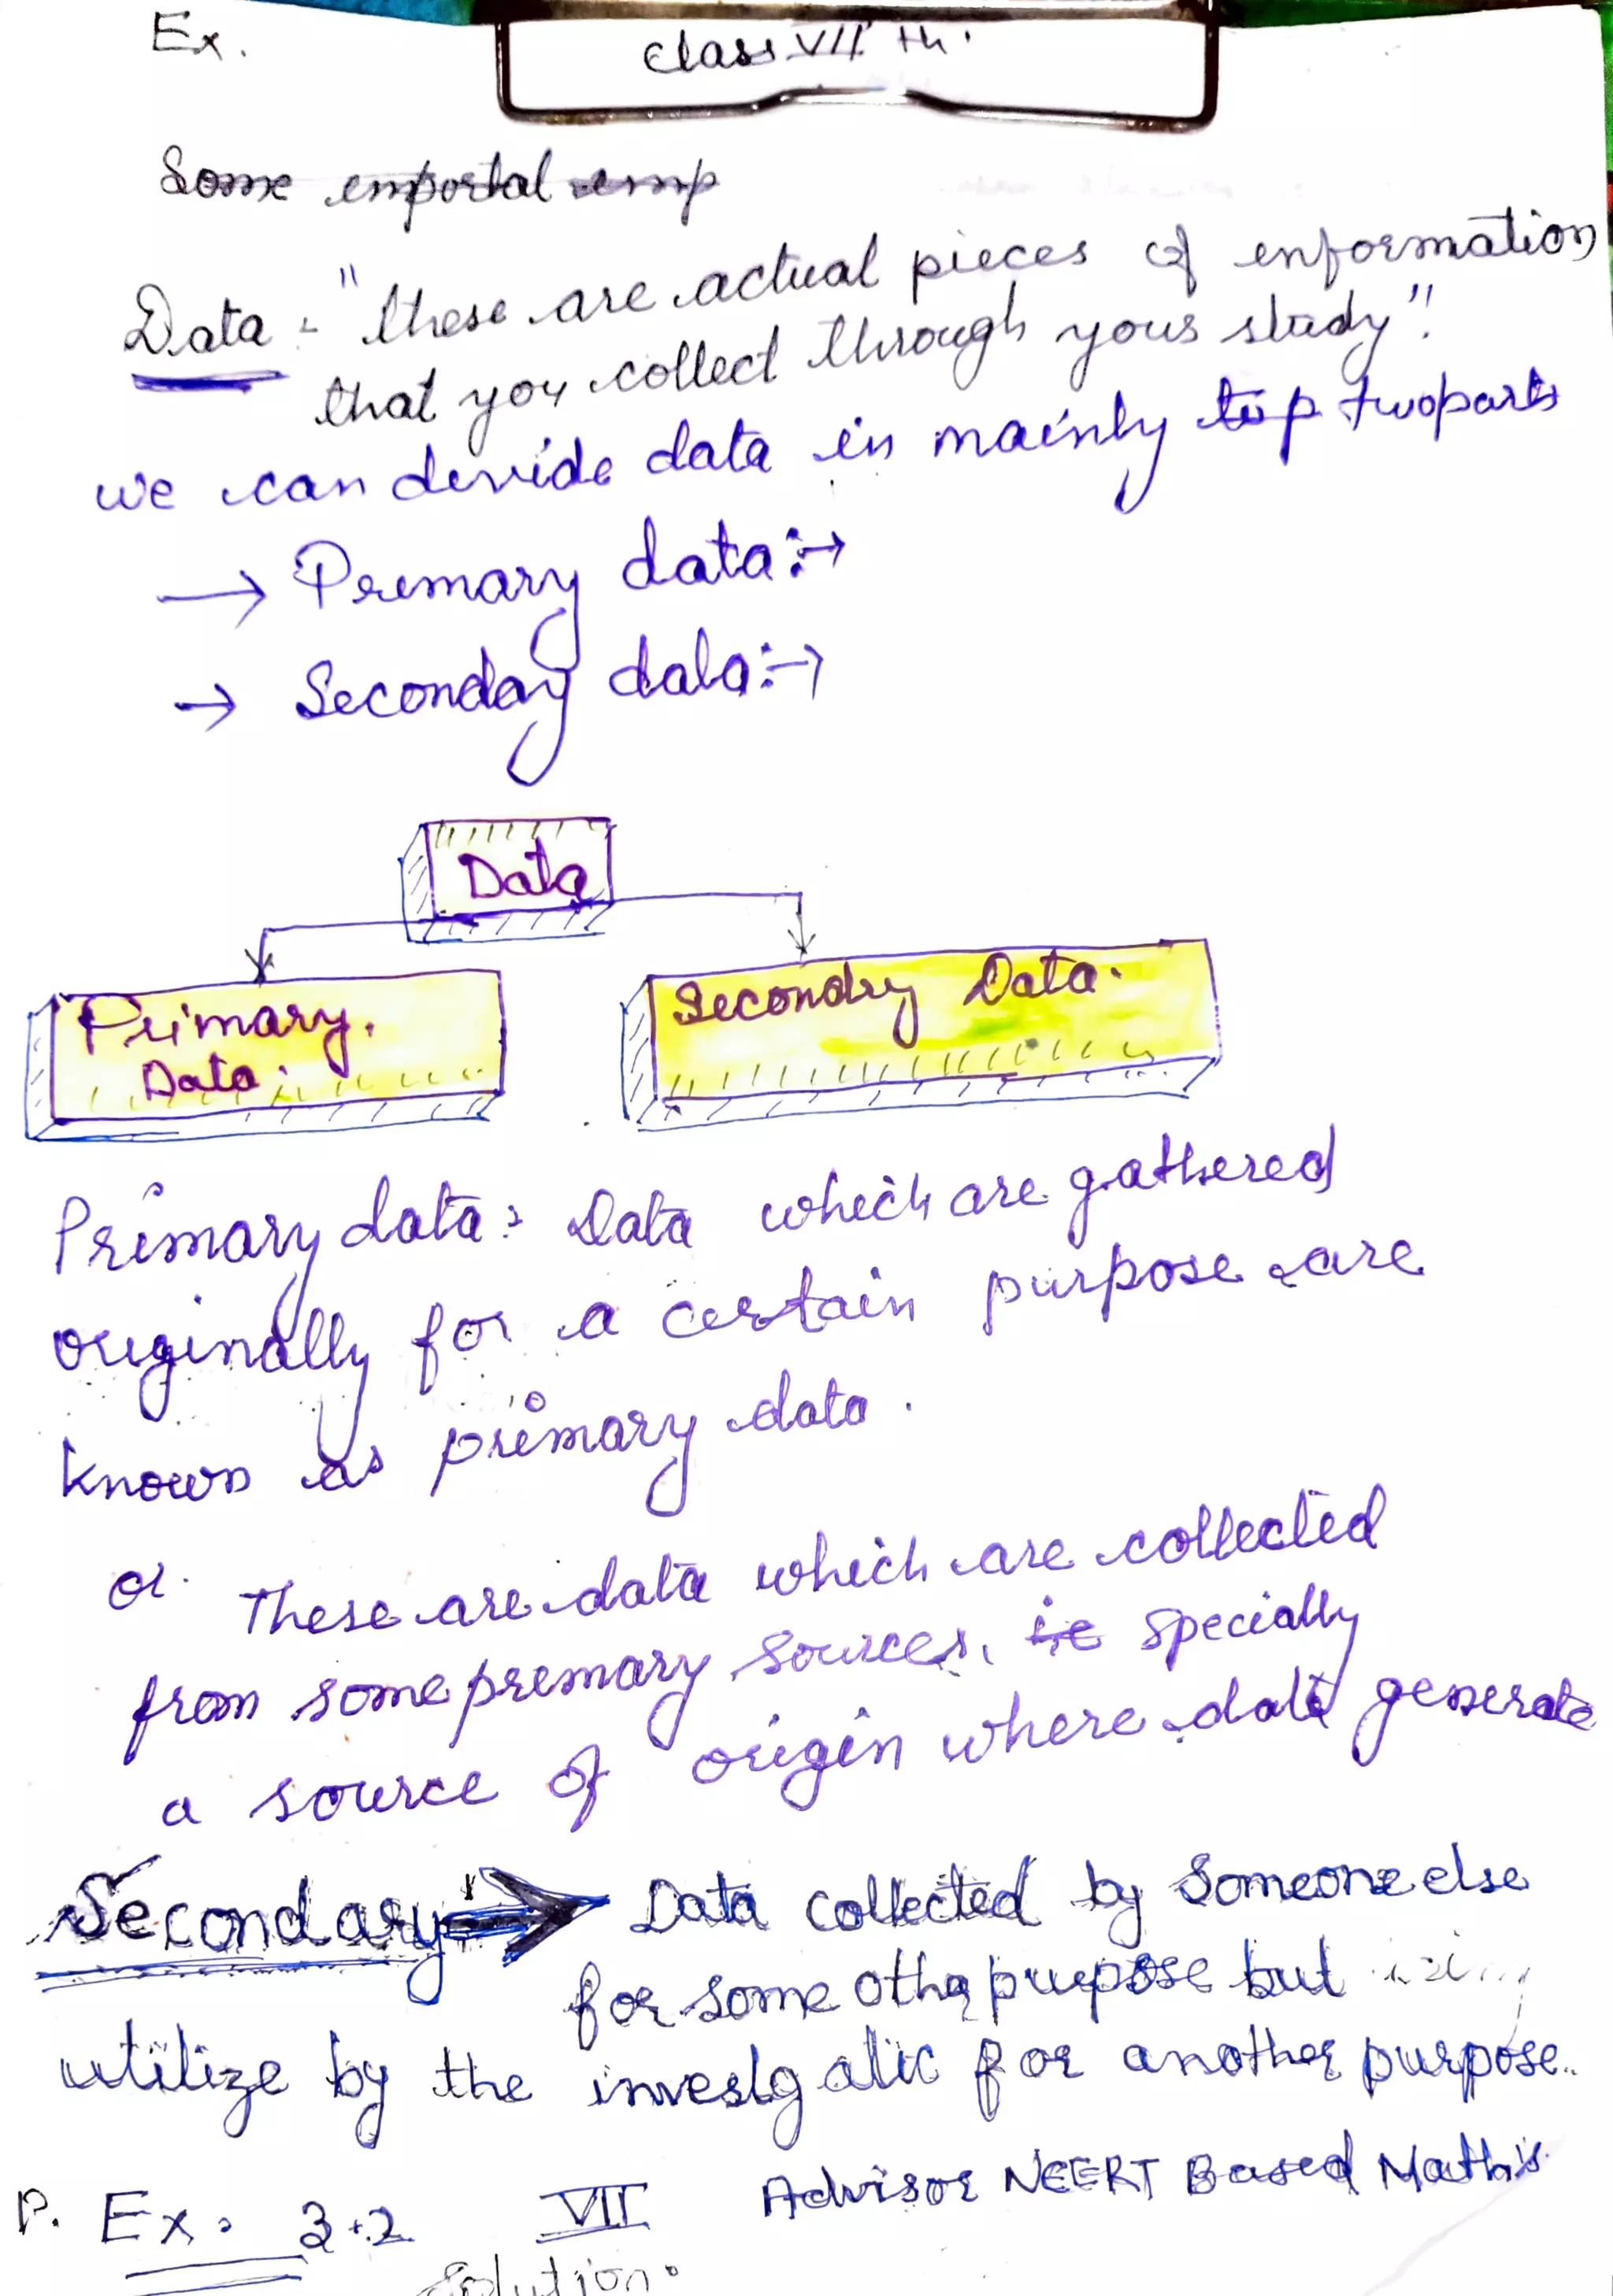 Ex.
Class VII th.
Some emportal emp
Data :- "these are actual pieces of enformation
that you collect through your study"!
we can devide data in mainly top two parts
→ Premary data:→
→ Seconday data:→
Data
Primary.
Data.
Secondry Data.
Primary data: Data which are gathered
originally for a certain purpose are
known as primary data.
or These are data which are collected
from some premary sources, i.e specially
a source of origin where data generate
Secondary → Data collected by Someone else
for some other purpose but
utilize by the for another purpose.
P. Ex. 3.2 VII Advisor NEERT Based Math's
Solution.